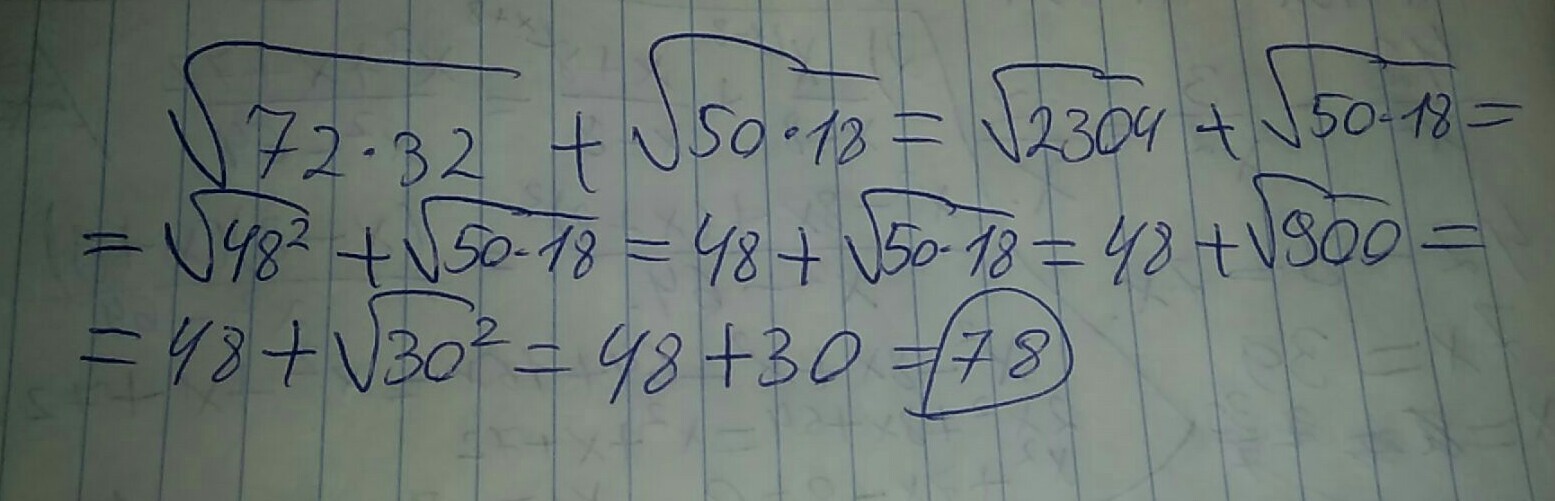 √72·32 + √50·18 = √2304 + √50·18 =
= √48² + √50·18 = 48 + √50·18 = 48 + √900 =
= 48 + √30² = 48 + 30 = 78